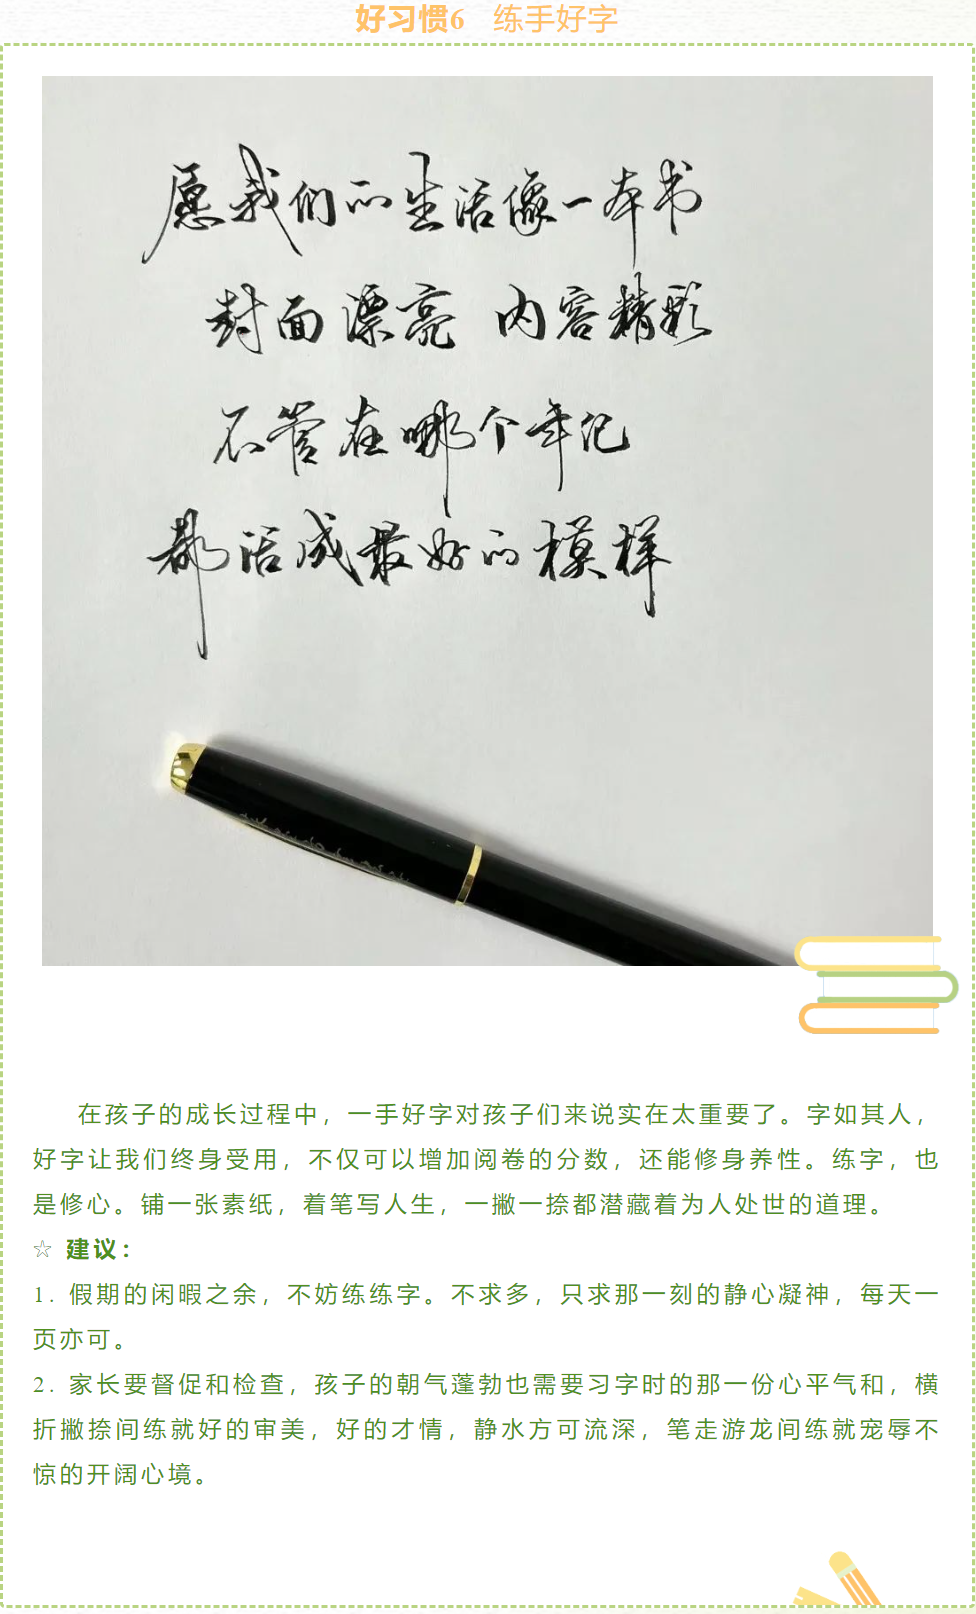 好习惯6 练手好字
愿我们的生活像一本书
封面漂亮 内容精彩
不管在哪个年记
都活成最好的模样
在孩子的成长过程中，一手好字对孩子们来说实在太重要了。字如其人，
好字让我们终身受用，不仅可以增加阅卷的分数，还能修身养性。练字，也
是修心。铺一张素纸，着笔写人生，一撇一捺都潜藏着为人处世的道理。
☆ 建议：
1. 假期的闲暇之余，不妨练练字。不求多，只求那一刻的静心凝神，每天一
页亦可。
2. 家长要督促和检查，孩子的朝气蓬勃也需要习字时的那一份心平气和，横
折撇捺间练就好的审美，好的才情，静水方可流深，笔走游龙间练就宠辱不
惊的开阔心境。